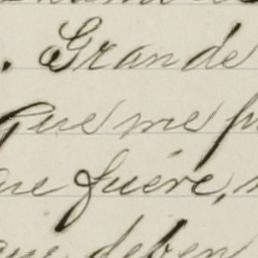 . Grande
Que me
que fuére,
que deben